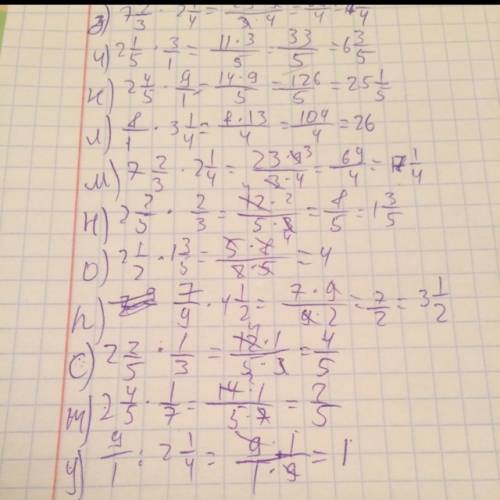 з) 7 2/3 · 2 1/4 =
и) 2 1/5 · 3/1 = 11·3/5 = 33/5 = 6 3/5
к) 2 4/5 · 9/1 = 14·9/5 = 126/5 = 25 1/5
л) 8/1 · 3 1/4 = 8·13/4 = 104/4 = 26
м) 7 2/3 · 2 1/4 = 23·9 3/3·4 = 69/4 = 1/4
н) 2 2/5 · 2/3 = 12·2/5·3 = 8/5 = 1 3/5
о) 2 1/2 · 1 3/5 = 5·8 4/2·5 = 4
п) 7/9 · 4 1/2 = 7·9/9·2 = 7/2 = 3 1/2
с) 2 2/5 · 1/3 = 12·1/5·3 = 4/5
т) 2 4/5 · 1/7 = 14·1/5·7 = 2/5
у) 9/1 : 2 1/4 = 9·1/1·9 = 1